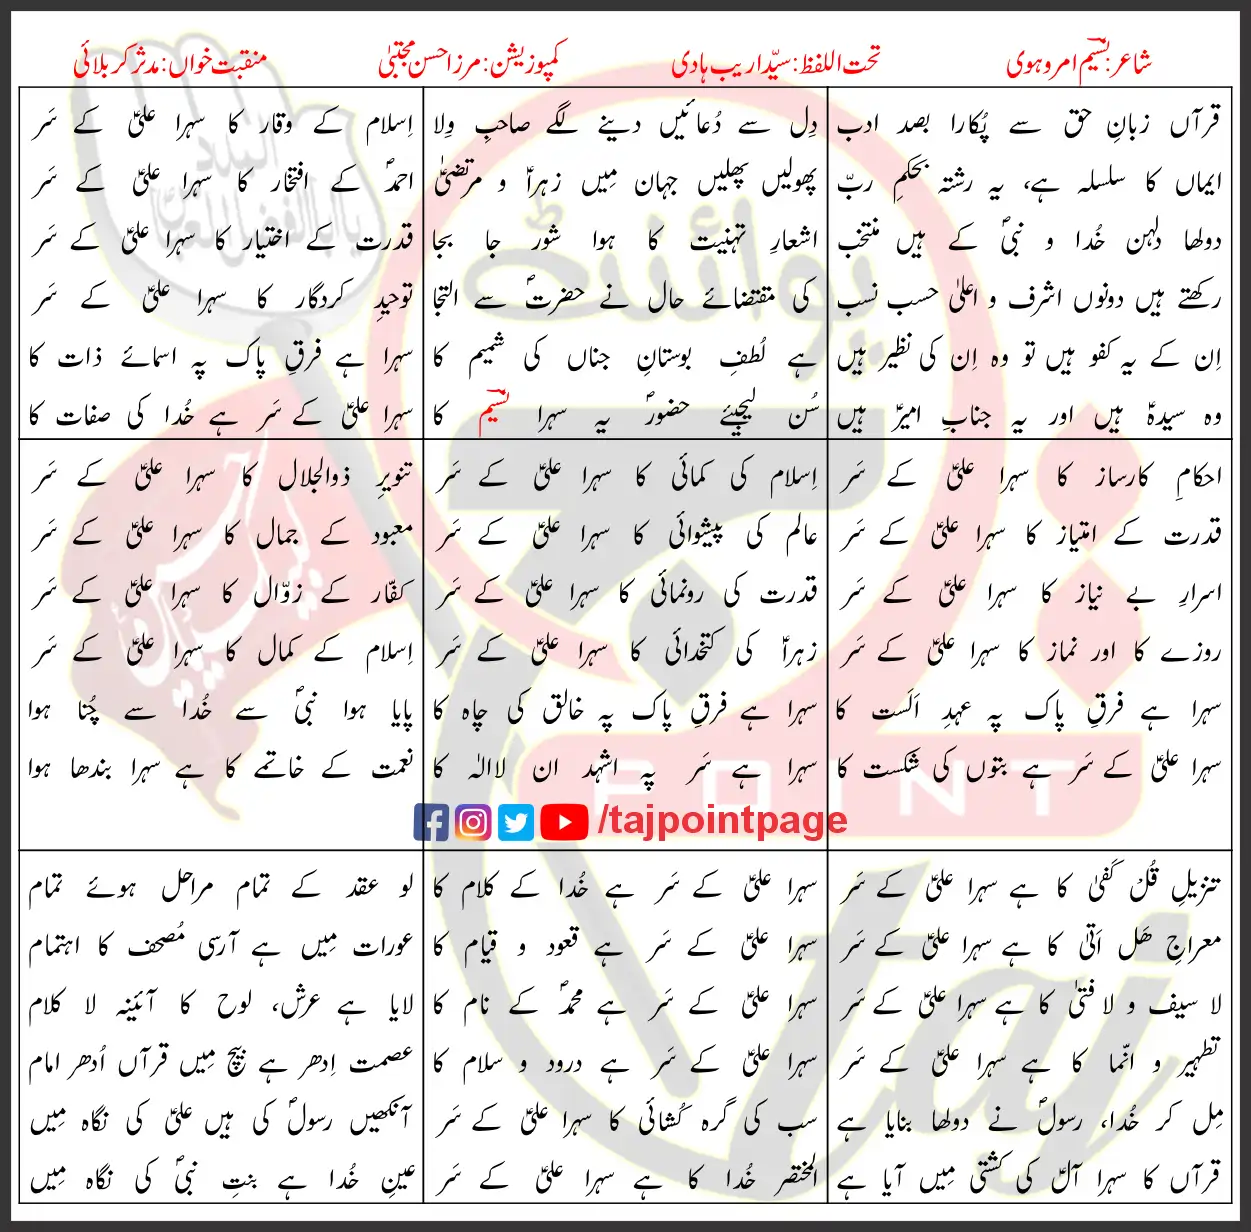 شاعر: نسیم امروہوی
تحت اللفظ: سیّد اریب ہادی
کمپوزیشن: مرزا حسن مجتبیٰ
منقبت خواں: مدثر کربلائی
قرآں زبانِ حق سے پُکارا بصد ادب
ایماں کا سلسلہ ہے، یہ رشتہ بحکمِ ربّ
دولھا دلہن خُدا و نبیؐ کے ہیں منتخب
رکھتے ہیں دونوں اشرف و اعلیٰ حسب نسب
اِن کے یہ کفو ہیں تو وہ اِن کی نظیر ہیں
وہ سیدہؑ ہیں اور یہ جنابِ امیرؑ ہیں
دِل سے دُعائیں دینے لگے صاحبِ وِلا
پھولیں پھلیں جہان مِیں زہراؑ و مرتضیٰؑ
اشعارِ تہنیت کا ہوا شور جا بجا
کی مقتضائے حال نے حضرتؐ سے التجا
ہے لُطفِ بوستانِ جناں کی شمیم کا
سُن لیجیئے حضورؐ یہ سہرا نسیم کا
اِسلام کے وقار کا سہرا علیؑ کے سَر
احمدؐ کے افتخار کا سہرا علیؑ کے سَر
قدرت کے اختیار کا سہرا علیؑ کے سَر
توحیدِ کردگار کا سہرا علیؑ کے سَر
سہرا ہے فرقِ پاک پہ اسمائے ذات کا
سہرا علیؑ کے سَر ہے خُدا کی صفات کا
احکامِ کارساز کا سہرا علیؑ کے سَر
قدرت کے امتیاز کا سہرا علیؑ کے سَر
اسرارِ بے نیاز کا سہرا علیؑ کے سَر
روزے کا اور نماز کا سہرا علیؑ کے سَر
سہرا ہے فرقِ پاک پہ عہدِ اَلَست کا
سہرا علیؑ کے سَر ہے بتوں کی شکست کا
اِسلام کی کمائی کا سہرا علیؑ کے سَر
عالم کی پیشوائی کا سہرا علیؑ کے سَر
قدرت کی رونمائی کا سہرا علیؑ کے سَر
زہراؑ کی کتخدائی کا سہرا علیؑ کے سَر
سہرا ہے فرقِ پاک پہ خالق کی چاہ کا
سہرا ہے سَر پہ اشہد ان لاالٰہ کا
تنویرِ ذوالجلال کا سہرا علیؑ کے سَر
معبود کے جمال کا سہرا علیؑ کے سَر
کفّار کے زوّال کا سہرا علیؑ کے سَر
اِسلام کے کمال کا سہرا علیؑ کے سَر
پایا ہوا نبیؐ سے خُدا سے چُنا ہوا
نعمت کے خاتمے کا ہے سہرا بندھا ہوا
/tajpointpage
تنزیلِ قُل کَفیٰ کا ہے سہرا علیؑ کے سَر
معراجِ ھَل اَتیٰ کا ہے سہرا علیؑ کے سَر
لا سیف و لا فتیٰ کا ہے سہرا علیؑ کے سَر
تطہیر و انّما کا ہے سہرا علیؑ کے سَر
مِل کر خُدا، رسولؐ نے دولھا بنایا ہے
قرآں کا سہرا آلؑ کی کشتی مِیں آیا ہے
سہرا علیؑ کے سَر ہے خُدا کے کلام کا
سہرا علیؑ کے سَر ہے قعود و قیام کا
سہرا علیؑ کے سَر ہے محمدؐ کے نام کا
سہرا علیؑ کے سَر ہے درود و سلام کا
سب کی گرہ کُشائی کا سہرا علیؑ کے سَر
المختصر خُدا کا ہے سہرا علیؑ کے سَر
لو عقد کے تمام مراحل ہوئے تمام
عورات مِیں ہے آرسی مُصحف کا اہتمام
لایا ہے عرش، لوح کا آئینہ لا کلام
عصمت اِدھر ہے بیچ مِیں قرآں اُدھر امام
آنکھیں رسولؐ کی ہیں علیؑ کی نگاہ مِیں
عینِ خُدا ہے بنتِ نبیؐ کی نگاہ مِیں
پوائنٹ
POINT
taj